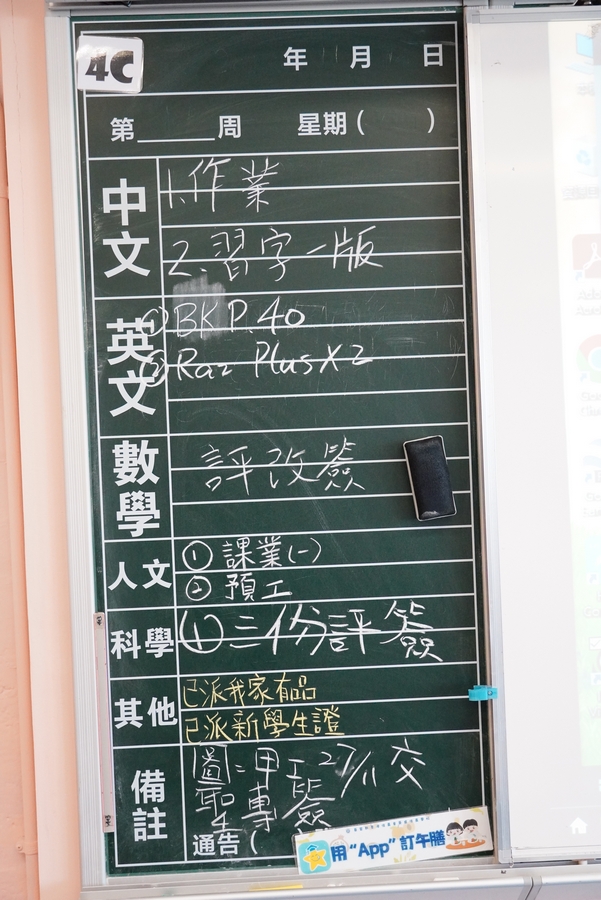 4C
年 月 日
第____周 星期( )
中文
1.作業
2.習字一版
英文
①BK P.40
②Raz Plus X2
數學
評改簽
人文
①課業(一)
②預工
科學
①三份評簽
其他
已派我家有品
已派新學生證
備註
圖=甲工 27/11交
聖專簽
通告(
用“App”訂午膳